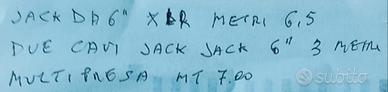 JACK DA 6" XLR METRI 6,5
DUE CAVI JACK JACK 6" 3 METRI
MULTIPRESA MT 7,00
subito